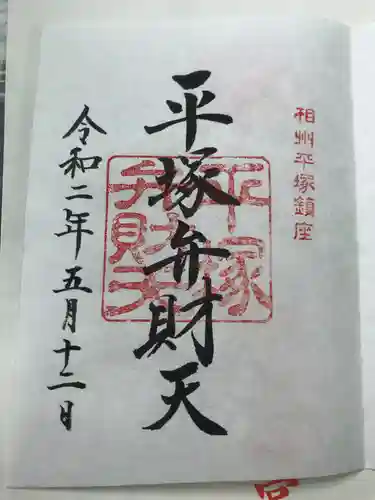 相州平塚鎮座
平塚弁財天
平塚
弁財天
令和二年五月十二日